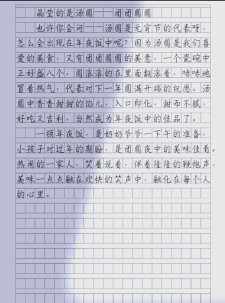 晶莹的是汤圆——团团圆圆
也许你会问——汤圆是元宵节的代表呀，
怎么会出现在年夜饭中呢？因为汤圆是我们喜
爱的美食，又有团团圆圆的美意，一个瓷碗中
正好盛八个，圆滚滚的在里面翻滚着，咕咕地
冒着热气，代表对下一年圆满开端的祝愿，汤
圆中香香甜甜的馅儿，入口即化，甜而不腻，
好吃又吉利，当然成为年夜饭中的佳品了。
一顿年夜饭，是奶奶爷爷一下午的准备，
小孩子对过年的期盼，是团圆夜中的美味佳肴。
热闹的一家人，笑着说着，伴着隆隆的鞭炮声，
美味一点点融在欢快的笑声中，融化在每个人
的心里。